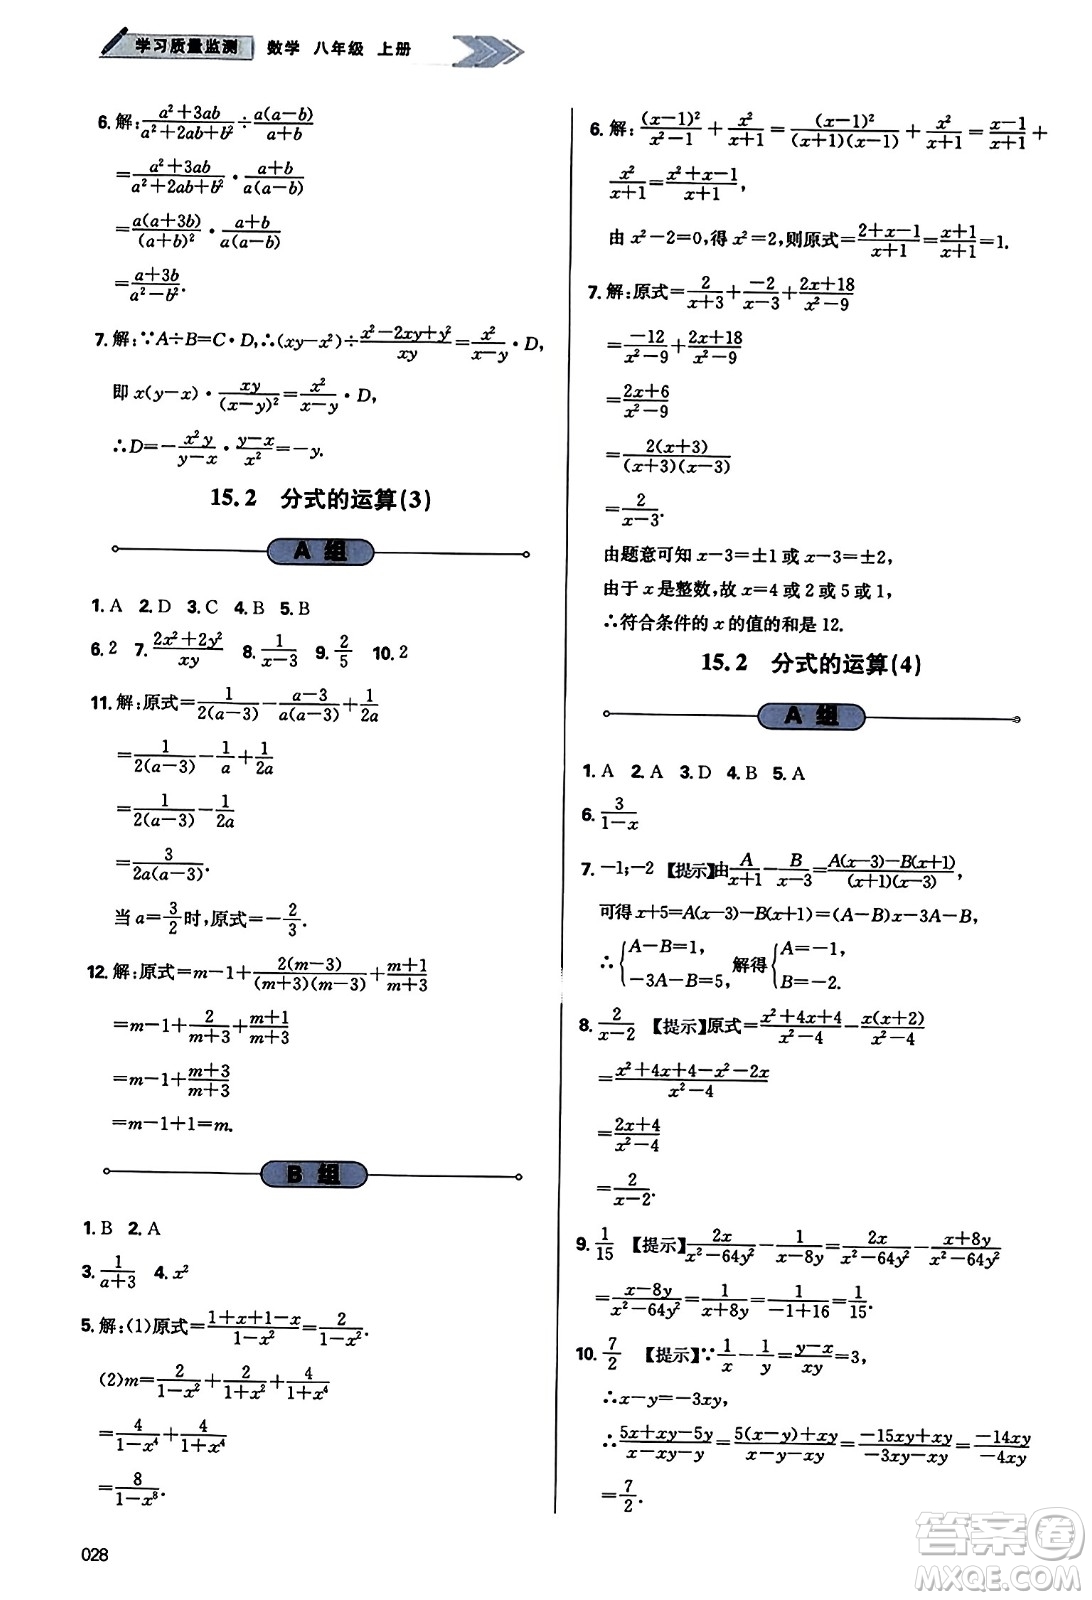 学习质量监测 数学 八年级 上册
6. 解: \frac{a²+3ab}{a²+2ab+b²} ÷ \frac{a(a−b)}{a+b}
= \frac{a²+3ab}{a²+2ab+b²} · \frac{a+b}{a(a−b)}
= \frac{a(a+3b)}{(a+b)²} · \frac{a+b}{a(a−b)}
= \frac{a+3b}{a²−b²}.
7. 解:∵A÷B=C·D,∴(xy−x²)÷\frac{x²−2xy+y²}{xy}=\frac{x²}{x−y}·D,
即 x(y−x)·\frac{xy}{(x−y)²}=\frac{x²}{x−y}·D,
∴D=−\frac{x²y}{y−x}·\frac{y−x}{x²}=−y.
15.2 分式的运算(3)
A 组
1. A 2. D 3. C 4. B 5. B
6. 2 7. \frac{2x²+2y²}{xy} 8. \frac{1}{x−3} 9. \frac{2}{5} 10. 2
11. 解:原式=\frac{1}{2(a−3)}−\frac{a−3}{a(a−3)}+\frac{1}{2a}
=\frac{1}{2(a−3)}−\frac{1}{a}+\frac{1}{2a}
=\frac{1}{2(a−3)}−\frac{1}{2a}
=\frac{3}{2a(a−3)}.
当 a=\frac{3}{2}时,原式=−\frac{2}{3}.
12. 解:原式=m−1+\frac{2(m−3)}{(m+3)(m−3)}+\frac{m+1}{m+3}
=m−1+\frac{2}{m+3}+\frac{m+1}{m+3}
=m−1+\frac{m+3}{m+3}
=m−1+1=m.
B 组
1. B 2. A
3. \frac{1}{a+3} 4. x²
5. 解:(1)原式=\frac{1+x+1−x}{1−x²}=\frac{2}{1−x²}.
(2)m=\frac{2}{1−x²}+\frac{2}{1+x²}+\frac{4}{1+x⁴}
=\frac{4}{1−x⁴}+\frac{4}{1+x⁴}
=\frac{8}{1−x⁸}.
028
6. 解:\frac{(x−1)²}{x²−1}+\frac{x²}{x+1}=\frac{(x−1)²}{(x+1)(x−1)}+\frac{x²}{x+1}=\frac{x−1}{x+1}+
\frac{x²}{x+1}=\frac{x²+x−1}{x+1},
由 x²−2=0,得 x²=2,则原式=\frac{2+x−1}{x+1}=\frac{x+1}{x+1}=1.
7. 解:原式=\frac{2}{x+3}+\frac{−2}{x−3}+\frac{2x+18}{x²−9}
=\frac{−12}{x²−9}+\frac{2x+18}{x²−9}
=\frac{2x+6}{x²−9}
=\frac{2(x+3)}{(x+3)(x−3)}
=\frac{2}{x−3}.
由题意可知 x−3=±1 或 x−3=±2,
由于 x 是整数,故 x=4 或 2 或 5 或 1,
∴符合条件的 x 的值的和是 12.
15.2 分式的运算(4)
A 组
1. A 2. A 3. D 4. B 5. A
6. \frac{3}{1−x}
7. −1;−2 【提示】由\frac{A}{x+1}−\frac{B}{x−3}=\frac{A(x−3)−B(x+1)}{(x+1)(x−3)},
可得 x+5=A(x−3)−B(x+1)=(A−B)x−3A−B,
∴{A−B=1, −3A−B=5, 解得{A=−1, B=−2.
8. \frac{2}{x−2} 【提示】原式=\frac{x²+4x+4}{x²−4}−\frac{x(x+2)}{x²−4}
=\frac{x²+4x+4−x²−2x}{x²−4}
=\frac{2x+4}{x²−4}
=\frac{2}{x−2}.
9. \frac{1}{15} 【提示】\frac{2x}{x²−64y²}−\frac{1}{x−8y}=\frac{2x}{x²−64y²}−\frac{x+8y}{x²−64y²}
=\frac{x−8y}{x²−64y²}=\frac{1}{x+8y}=\frac{1}{−1+16}=\frac{1}{15}.
10. \frac{7}{2} 【提示】∵\frac{1}{x}−\frac{1}{y}=\frac{y−x}{xy}=3,
∴x−y=−3xy,
∴\frac{5x+xy−5y}{x−xy−y}=\frac{5(x−y)+xy}{x−y−xy}=\frac{−15xy+xy}{−3xy−xy}=\frac{−14xy}{−4xy}
=\frac{7}{2}.
答案圈
MXQE.COM